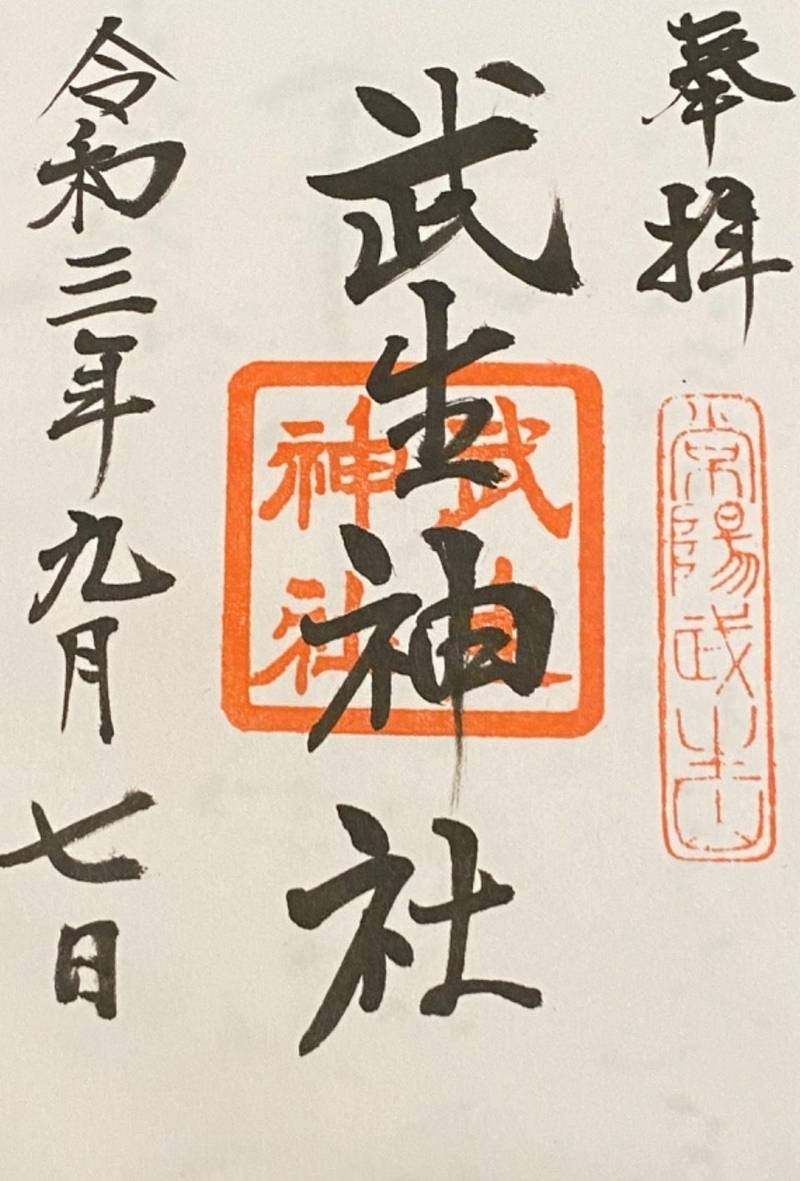 奉拝
常陽武
武生神社
武生
神社
令和三年九月七日